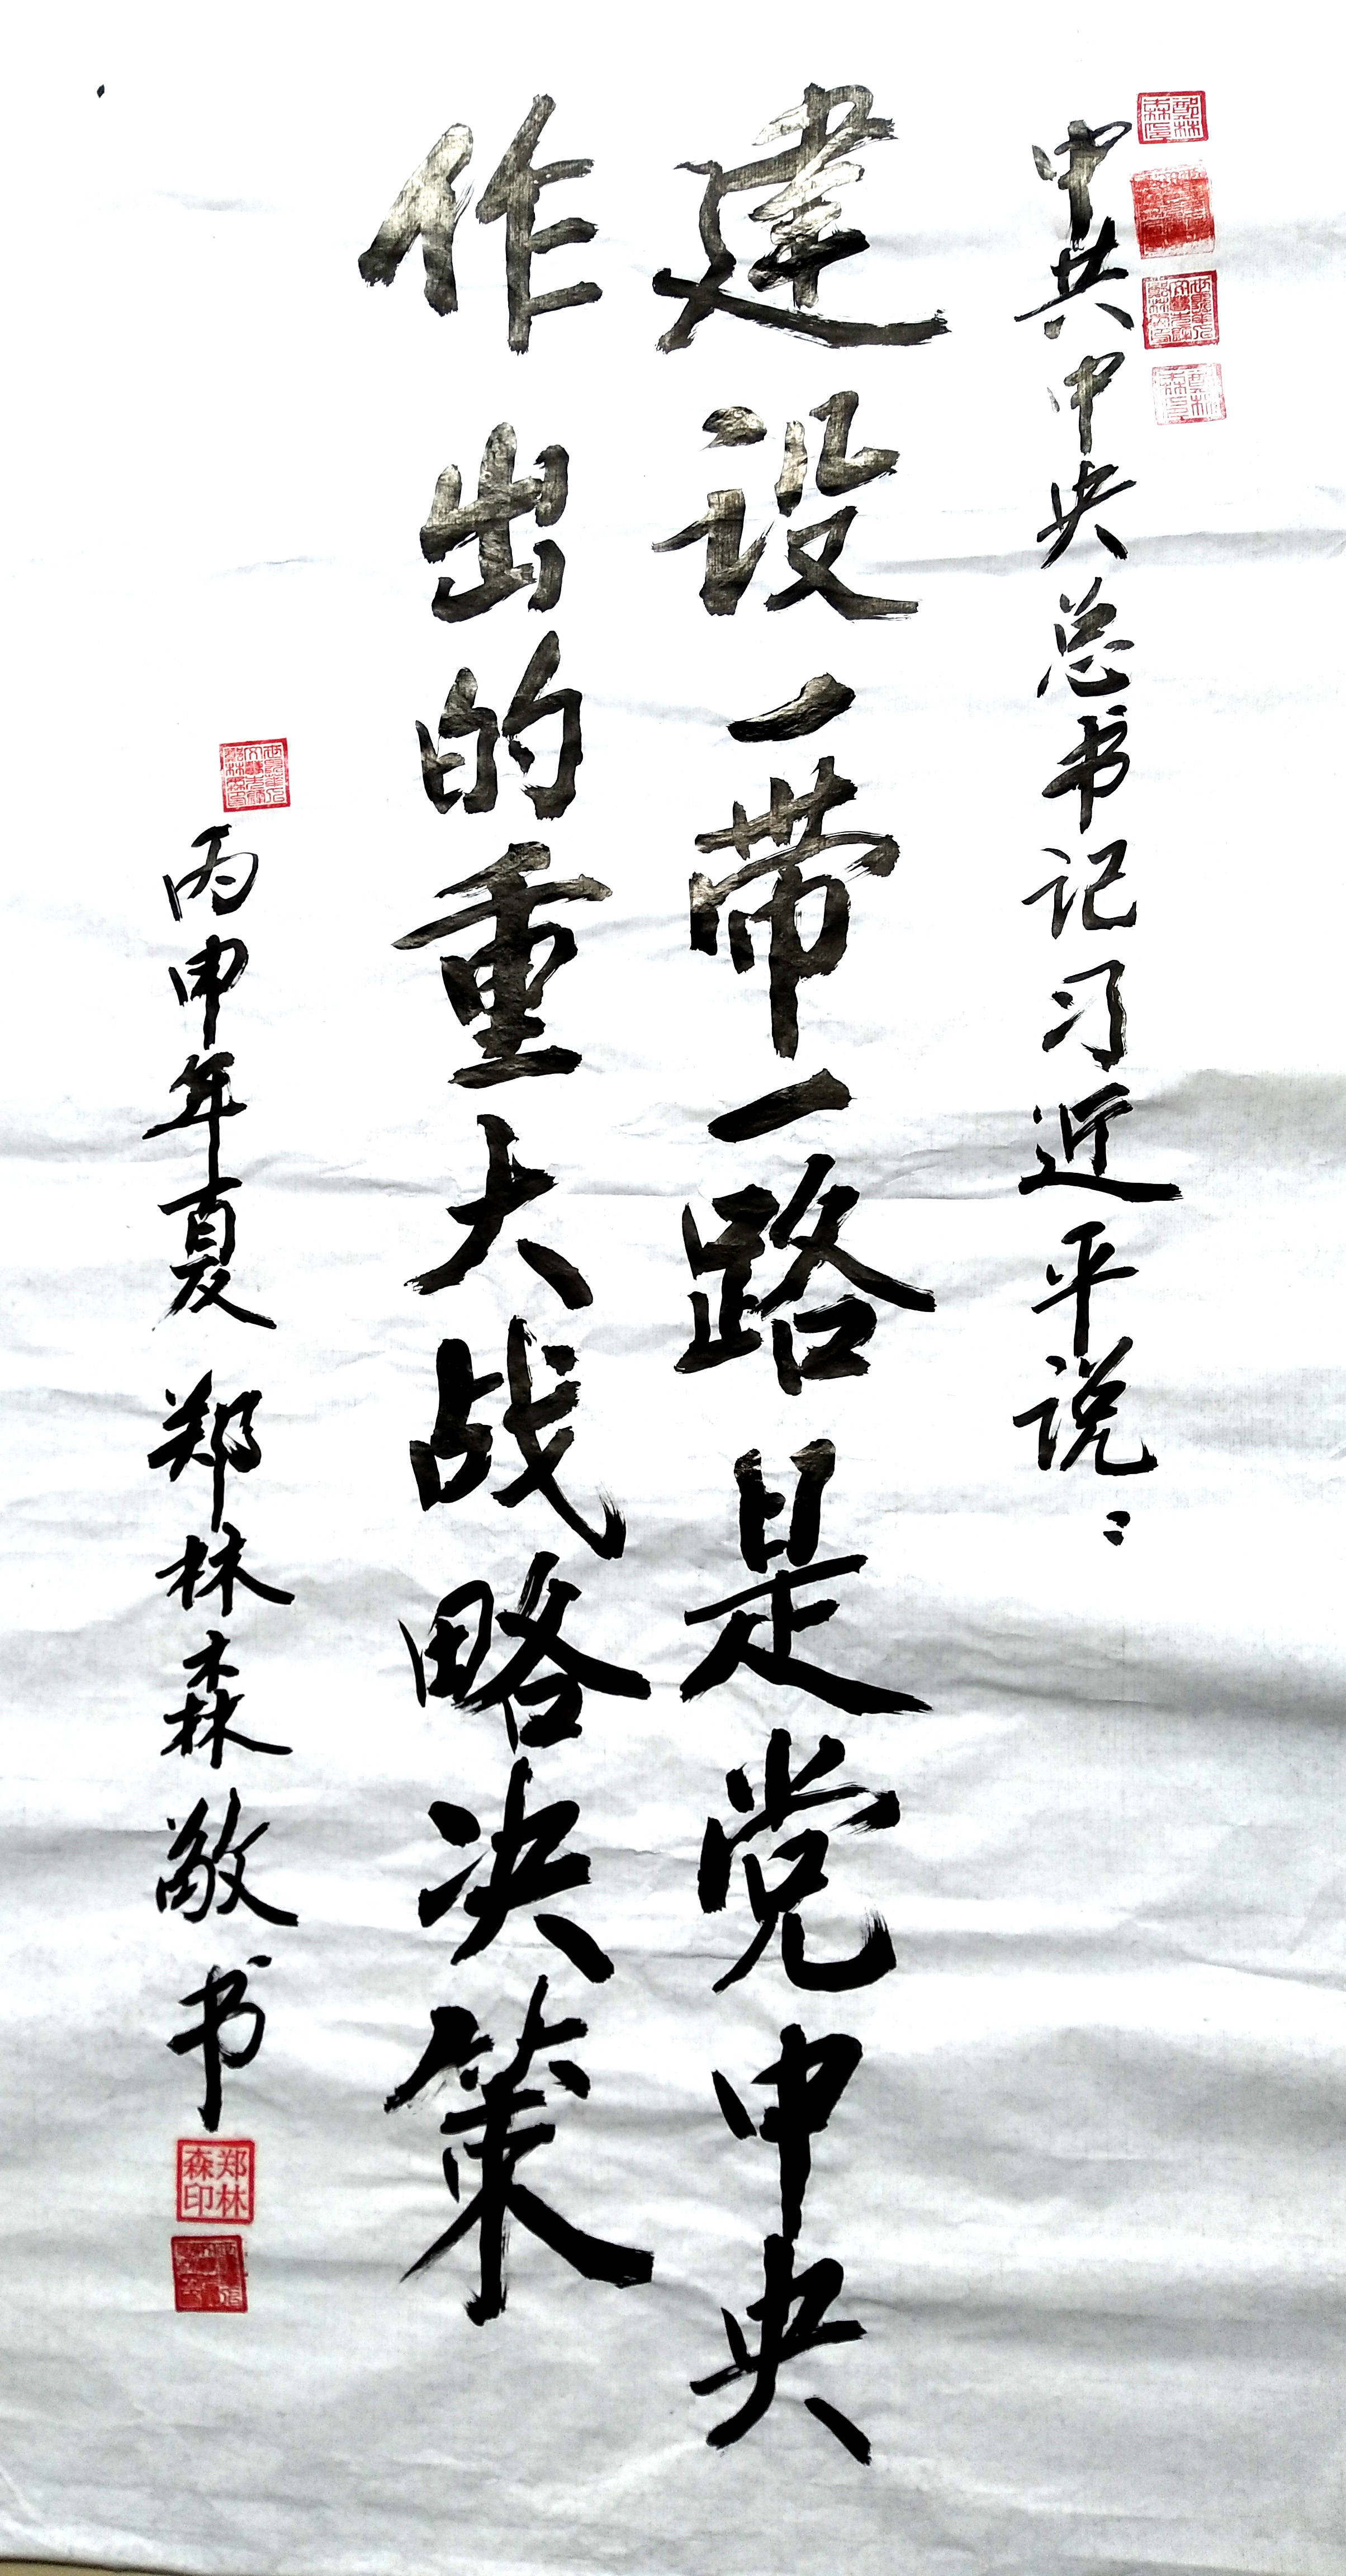 中共中央总书记习近平说：
建设一带一路是党中央
作出的重大战略决策
丙申年夏 郑林森敬书
郑林森印